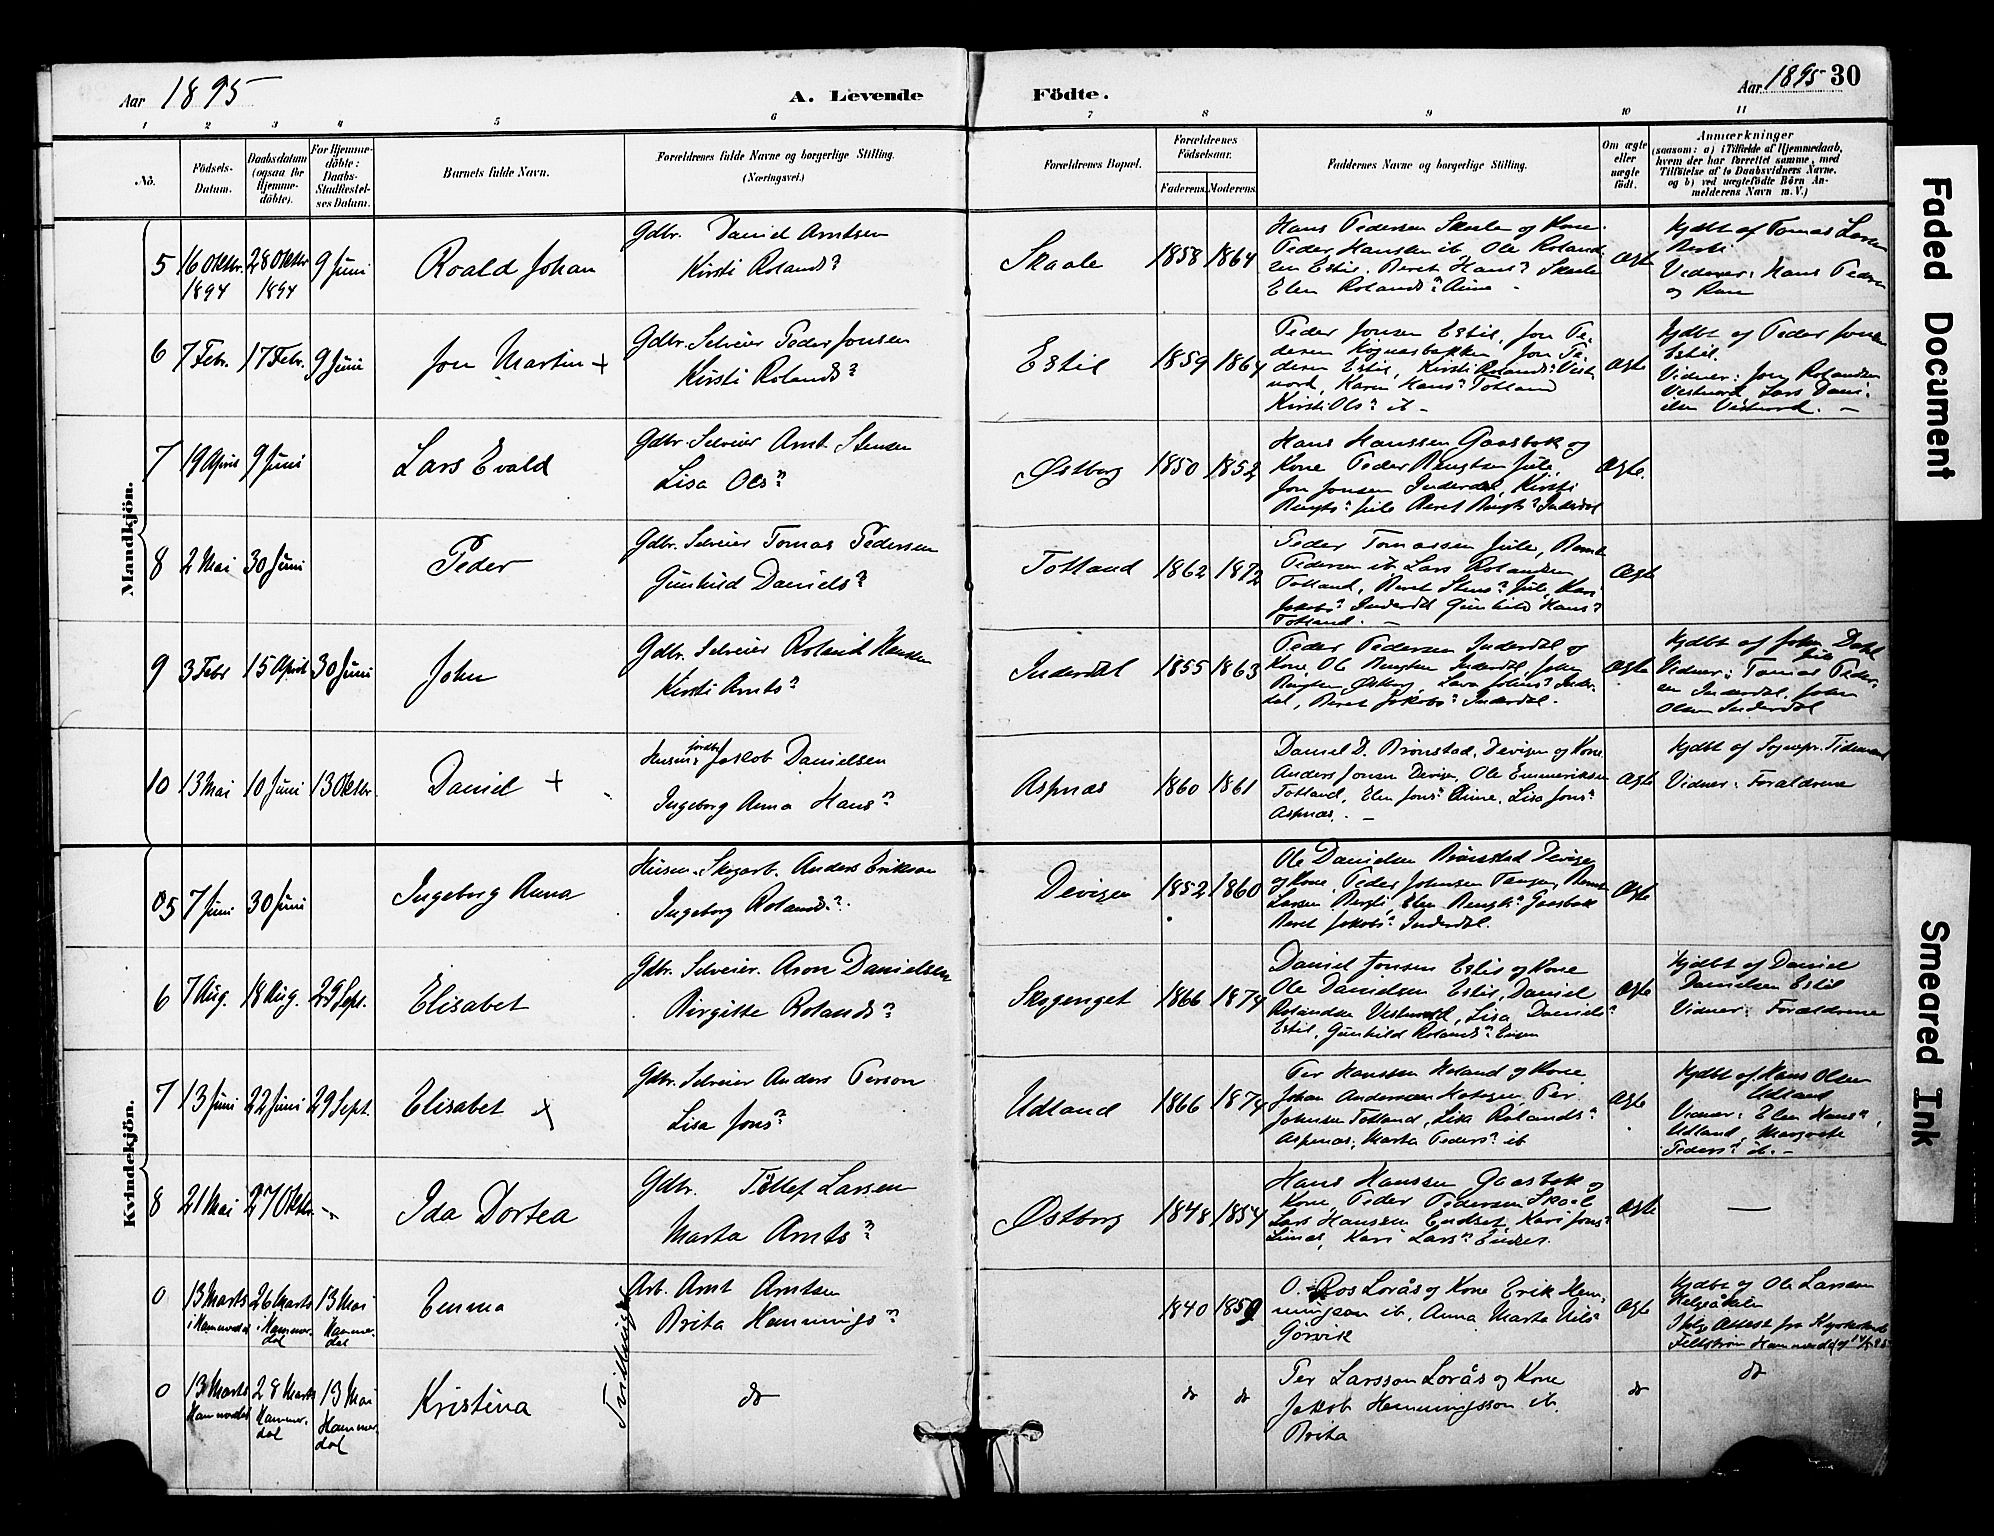 Aar 1895
A. Levende
Födte.
Aar 1895 30
1 2 3 4 5 6 7 8 9 10 11
No.
Födsels-
Datum.
Daabsdatum
(ogsaa for
Hjemme-
döbte).
For Hjemme-
döbte:
Daabs-
Stadfæstel-
ses Datum.
Barnets fulde Navn.
Forældrenes fulde Navne og borgerlige Stilling.
(Næringsvei.)
Forældrenes Bopæl.
Forældrenes
Födselsaar.
Faderens. Moderens.
Faddernes Navne og borgerlige Stilling.
Om ægte
eller
uægte
födt.
Anmærkninger
(saasom: a) i Tilfælde af Hjemmedaab,
hvem der har forrettet samme, med
Tilföielse af to Daabsvidners Navne,
og b) ved uægtefödte Börn An-
melderens Navn m. V.)
Mandkjön.
5
16 Oktbr.
1894
28 Oktbr
1894
9 Juni
Roald Johan
Gdbr. Daniel Arntsen
Kirsti Rolandsn
Skaale
1858 1864
Hans Pedersen Skaale og Kone
Peder Hansen ib. Ole Roland-
sen Estil. Beret Hansn Skaale
Elen Rolandsn
Ægte
Hjdbt af Tomas Larsen
Vidner: Hans Pedersen
6
7 Febr.
17 Febr.
9 Juni
Jon Martin +
Gdbr. Selveier Peder Jonsen
Kirsti Rolandsn
Estil
1859 1864
Peder Jonsen Estil, Jon Pe-
dersen Jon Pe-
dersen Estil, Kirsti Rolandsn Vest-
nord, Karen Hansn Totland
Kirsti Olsn ib –
Ægte
Hjdbt af Peder Jonsen
Estil.
Vidner: Jon Rolandsen
Vestnord, Lars Dani-
elsen Vestnord. –
7
19 April
9 Juni
Lars Evald
Gdbr. Selveier Arnt Stensen
Lisa Olsn
Østborg
1850 1852
Hans Hanssen Gaasbak og
Kone Peder Bengtsen Jule,
Jon Jonsen Inderdal, Kirsti
Bengtsn Jule Beret Bengtsn Inderdal
Ægte.
8
2 Mai
30 Juni
Peder
Gdbr. Selveier Tomas Pedersen
Gunhild Danielsn
Totland
1862 1872
Peder Tomassen Jule, Bernt
Pedersen ib. Lars Rolandsen
Totland, Beret Stensn Jule, Kari
Jakobsn Inderdal Gunhild Hansn
Totland. –
Ægte
9
3 Febr
15 April
30 Juni
John
Gdbr. Selveier Roland Hansen
Kirsti Arntsn
Inderdal
1855 1863
Peder Pedersen Inderdal og
Kone Ole Bengtsen Inderdal, John
Bengtsen Østborg, Inder-
dal, Beret Jakobsn Inderdal.
Ægte
Hjdbt af John Dahl
Jule
Vidner: Tomas Peder-
sen Inderdal, John
Olsen Inderdal
10
13 Mai
10 Juni
13 Oktbr
Daniel +
Husm. jordbr Jakob Danielsen
Ingeborg Anna Hansn
Aspnæs
1860 1861
Daniel D. Brønstad, Devigen og Kone
Anders Jonsen Devigen, Ole Emmeriksen
Totland, Elen Jonsn Lisa Jonsn
Aspnæs. –
Ægte
Hjdbt af Sognepr. Tidemand
Vidner: Forældrene
Kvindekjön.
5
7 Juni
30 Juni
Ingeborg Anna
Husm. Skogarb. Anders Erikson
Ingeborg Rolandsn
Devigen
1852 1860
Ole Danielsen Brønstad Devigen
og Kone, Peder Johnsen Tangen, Bernt
Larsen Elen Bengtsn Gaasbak
Beret Jakobsn Inderdal.
Ægte
6
7 Aug.
18 Aug.
29 Sept.
Elisabet
Gdbr. Selveier. Aron Danielsen
Birgitte Rolandsn
Skogenget
1866 1874
Daniel Jonsen Estil og Kone
Ole Danielsen Estil, Daniel
Rolandsen Vestnord, Lisa Danielsn
Estil, Gunhild Rolandsn
Ægte
Hjdbt af Daniel
Danielsen Estil
Vidner: Forældrene
7
13 Juni
22 Juni
29 Sept.
Elisabet +
Gdbr. Selveier Anders Person
Lisa Jonsn
Udland
1866 1874
Per Hanssen og Kone
Johan Andersen Per
Johnsen Totland, Lisa Rolandsn
Aspnæs, Marta Pedersn ib
Ægte
Hjdbt af Hans Olsen
Udland
Vidner: Elen Hansn,
Udland, Margrete
Pedersn ib. –
8
21 Mai
27 Oktbr
–
Ida Dortea
Gdbr. Tollef Larsen
Marta Arntsn
Østborg
1848 1854
Hans Hanssen Gaasbak og
Kone Peder Pedersen
Lars Hanssen Kari Jonsn
Kari Larsn
Ægte
–
0
13 Marts
i Hammerdal
26 Marts
i Hammer-
dal
13 Mai
Hammer-
dal
Emma
Arb. Arnt Arntsen
Brita Hemmingsn
Tvillinger
1840 1859
Lorås og Kone Erik Hem-
mingson ib, Anna Marta Nils
Görvik
Ægte
Hjdbt af Ole Larsson
Ifølge Attest fra
Hammerdal
0
13 Marts
Hammerdal
28 Marts
Hammer-
dal
13 Mai
Hammer-
dal
Kristina
do
do do
Per Larsson Lorås og Kone
Jakob Hemmingsson ib.
Brita
do
do
Faded Document
Smeared Ink